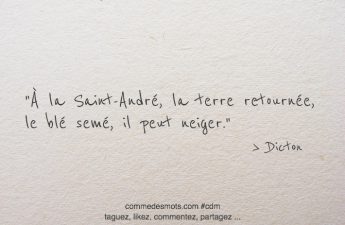 "À la Saint-André, la terre retournée,
le blé semé, il peut neiger."
> Dicton
commedesmots.com #cdm
taguez, likez, commentez, partagez ...